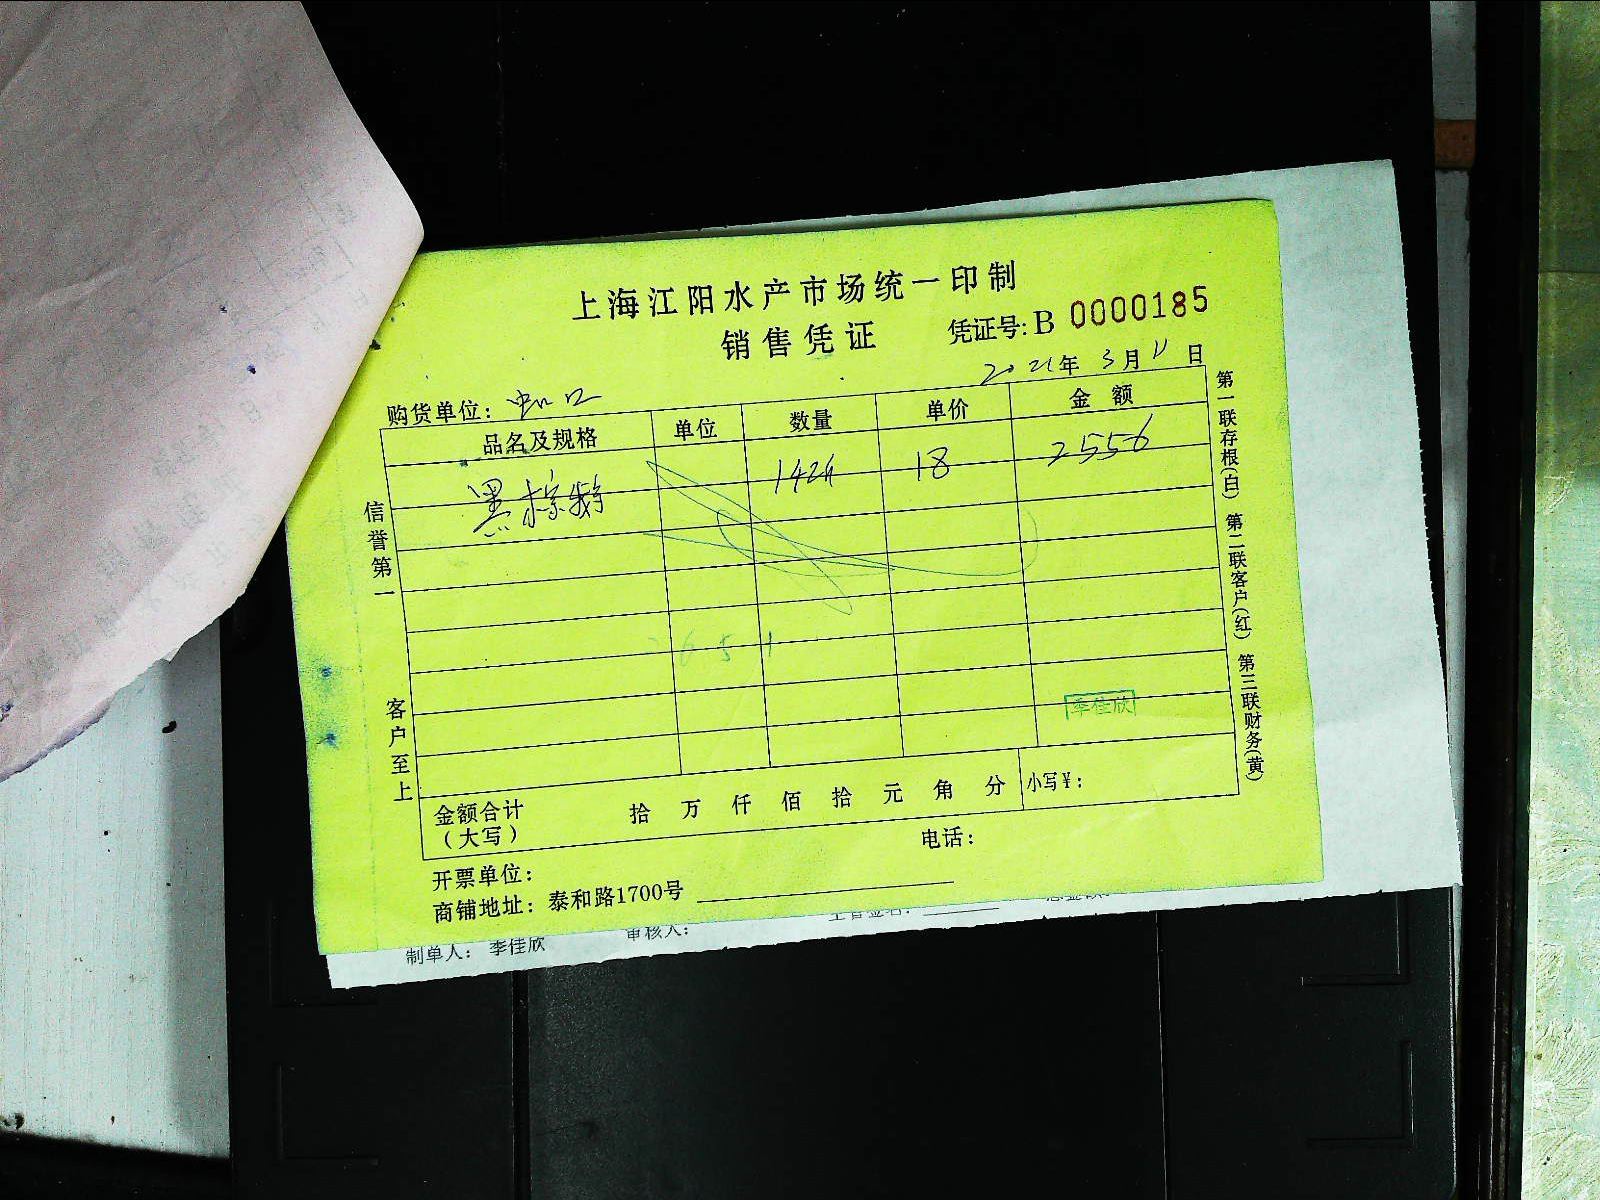 上海江阳水产市场统一印制
销售凭证 凭证号: B 0000185
2021年 3月 11日
购货单位: 虹口
品名及规格 单位 数量 单价 金额
黑棕鹅 142斤 18 2556
2651
李佳欣
金额合计(大写) 拾 万 仟 佰 拾 元 角 分 小写¥:
开票单位: 电话:
商铺地址: 泰和路1700号
信誉第一
客户至上
第一联存根(白) 第二联客户(红) 第三联财务(黄)
制单人: 李佳欣 审核人: